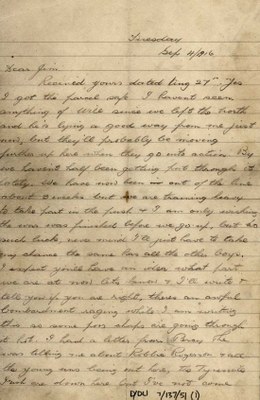 Tuesday
Sep 11/1916
Dear Jim
Received yours dated Aug 27th. Yes
I got the parcel safe. I havent seen
anything of Will since we left the north
and he is lying a good way from me just
now, but they'll probably be moving
further up here when they go into action. By
we havent half been getting put through it
lately. We have now been out of the line
about 3 weeks but are training heavy
to take part in the push & I am only wishing
the war was finished before we go up, but no
such luck, never mind I'll just have to take
my chance the same as all the other boys.
I expect you'll have an idea what part
we are at now lets know & I'll write &
tell you if you are right, theres an awful
bombardment raging while I am writing
this so some poor chaps are going through
it hot. I had a letter from Percy he
was telling me about Robbie & all
the young ones being out here, the Tyneside
Irish are down here but I've not come
D/DU 7/137/51 (1)